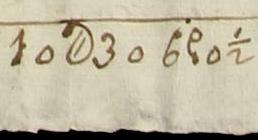 1 0 D 3 0 6 9 0 ½